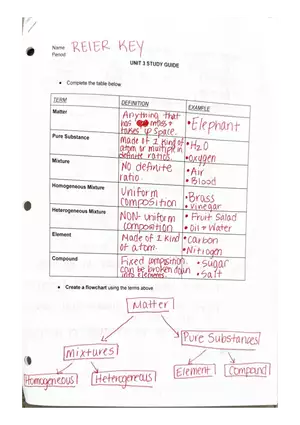 Name REIER KEY
Period
UNIT 3 STUDY GUIDE
• Complete the table below
TERM DEFINITION EXAMPLE
Matter
Anything that
has mass +
takes up space.
• Elephant
Pure Substance
Made of 1 kind of
atom or multiple in
definite ratios.
• H2O
• oxygen
Mixture
No definite
ratio.
• Air
• Blood
Homogeneous Mixture
Uniform
composition
• Brass
• Vinegar
Heterogeneous Mixture
NON-uniform
composition
• Fruit Salad
• Oil + Water
Element
Made of 1 kind
of atom.
• Carbon
• Nitrogen
Compound
Fixed composition.
can be broken down
into elements.
• Sugar
• Salt
• Create a flowchart using the terms above
Matter
Mixtures
Pure Substances
Homogeneous
Heterogeneous
Element
Compound